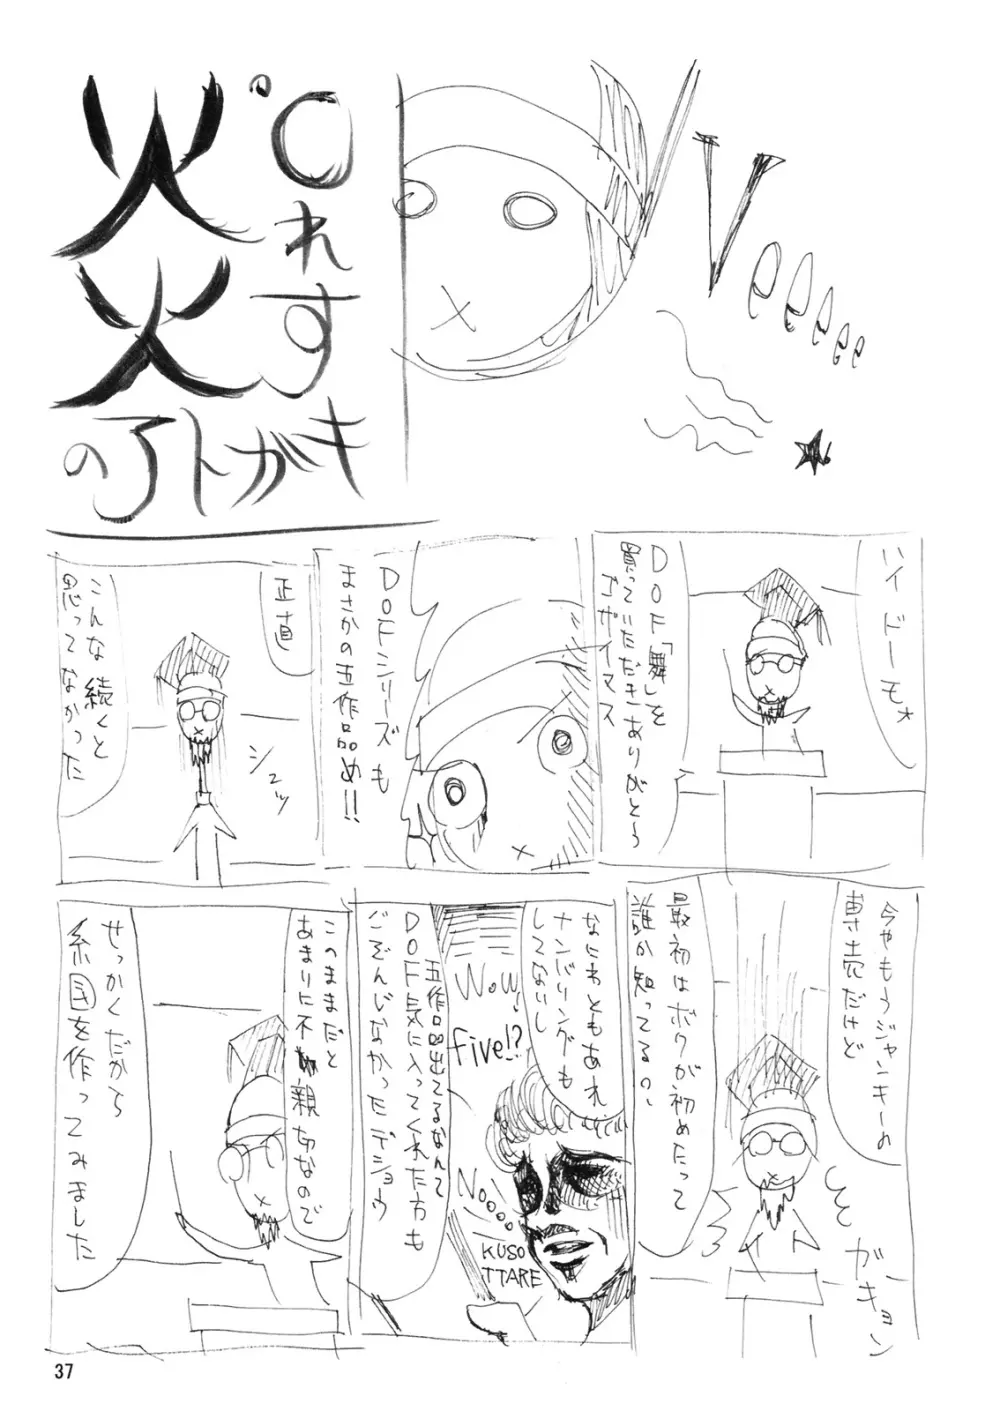 Veeeee
℃れすす
火火
のアトガキ
ハイドーモ☆
DOF「舞」を
買っていただきありがとう
ゴザイマス
DOFシリーズも
まさかの五作品め!!
正直
こんな続くと
思ってなかった
シュッ
今やもうジャンキーの
専売だけど
最初はボクが初めたって
誰か知ってるの、
ガーキョン
なにわともあれ
ナンバリングも
してないし
Wow!
five!?
Noooo
KUSO
TTARE
五作品出てるなんて
DOF気に入ってくれた方も
ごぞんじなかったデショウ
このままだと
あまりに不親切なので
せっかくだから
系図を作ってみました
37